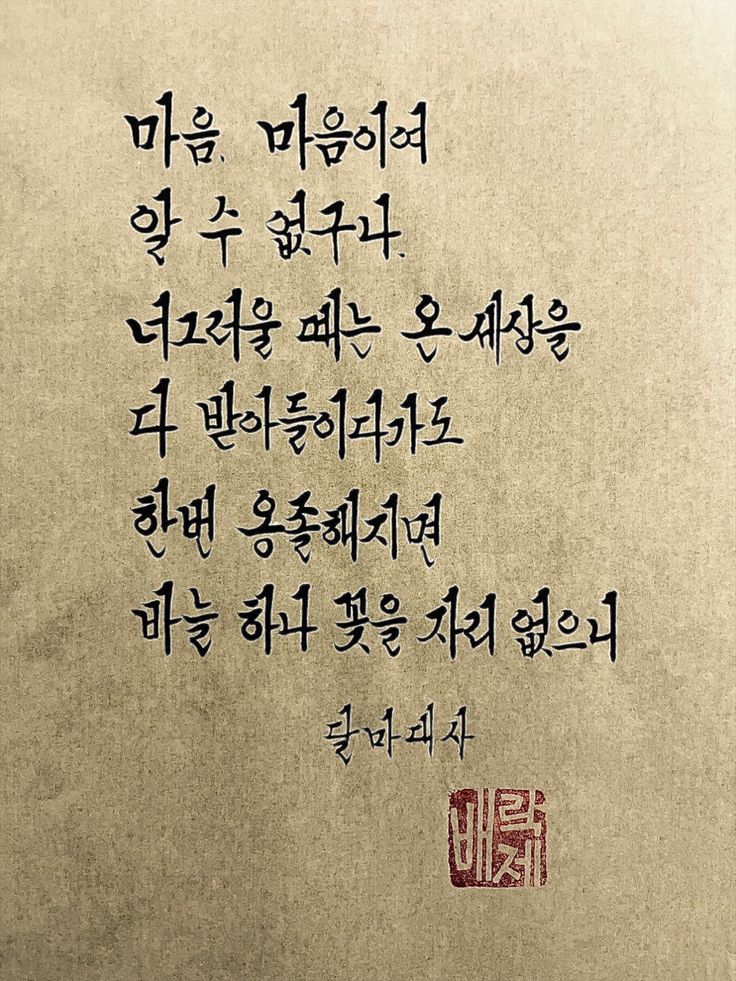 마음, 마음이여
알 수 없구나.
너그러울 때는 온 세상을
다 받아들이다가도
한번 옹졸해지면
바늘 하나 꽂을 자리 없으니
달마대사
배락제